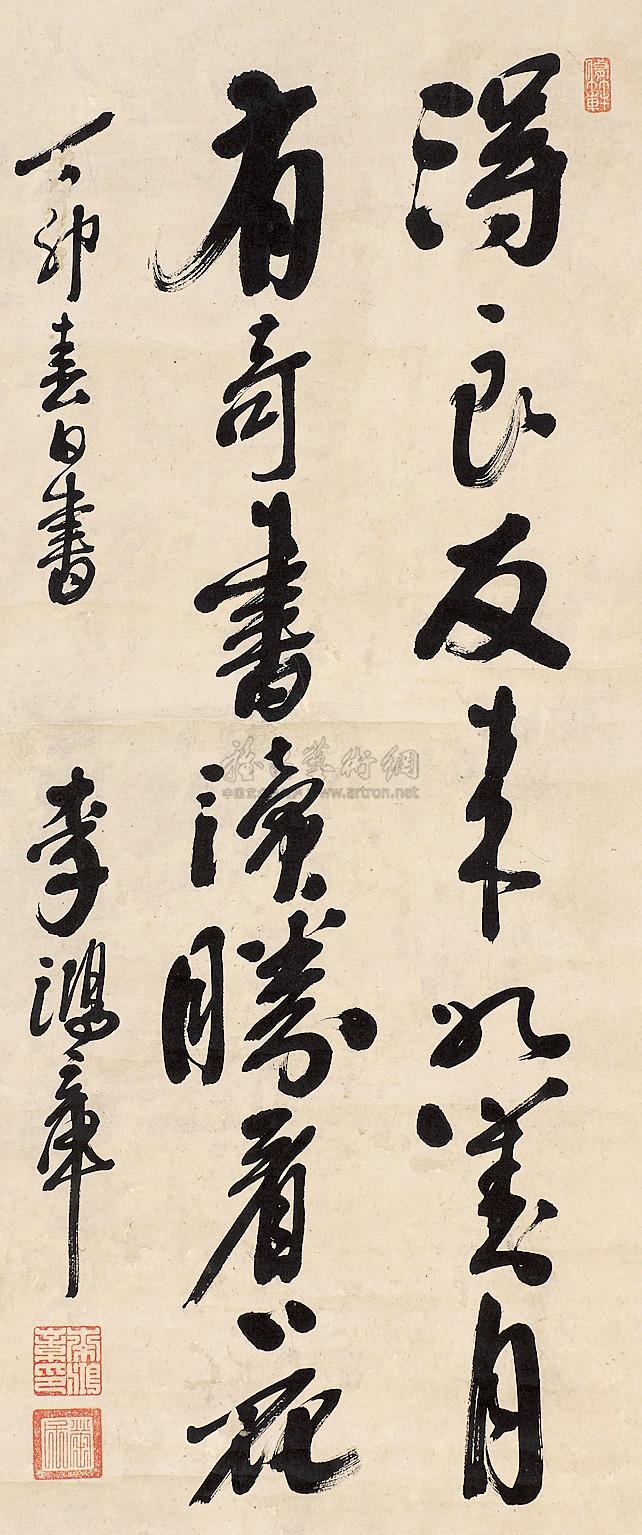 得良友来如对月
有奇書讀勝看花
丁卯春日書
李鴻章
雅昌藝術網
中国艺术品门户 www.artron.net